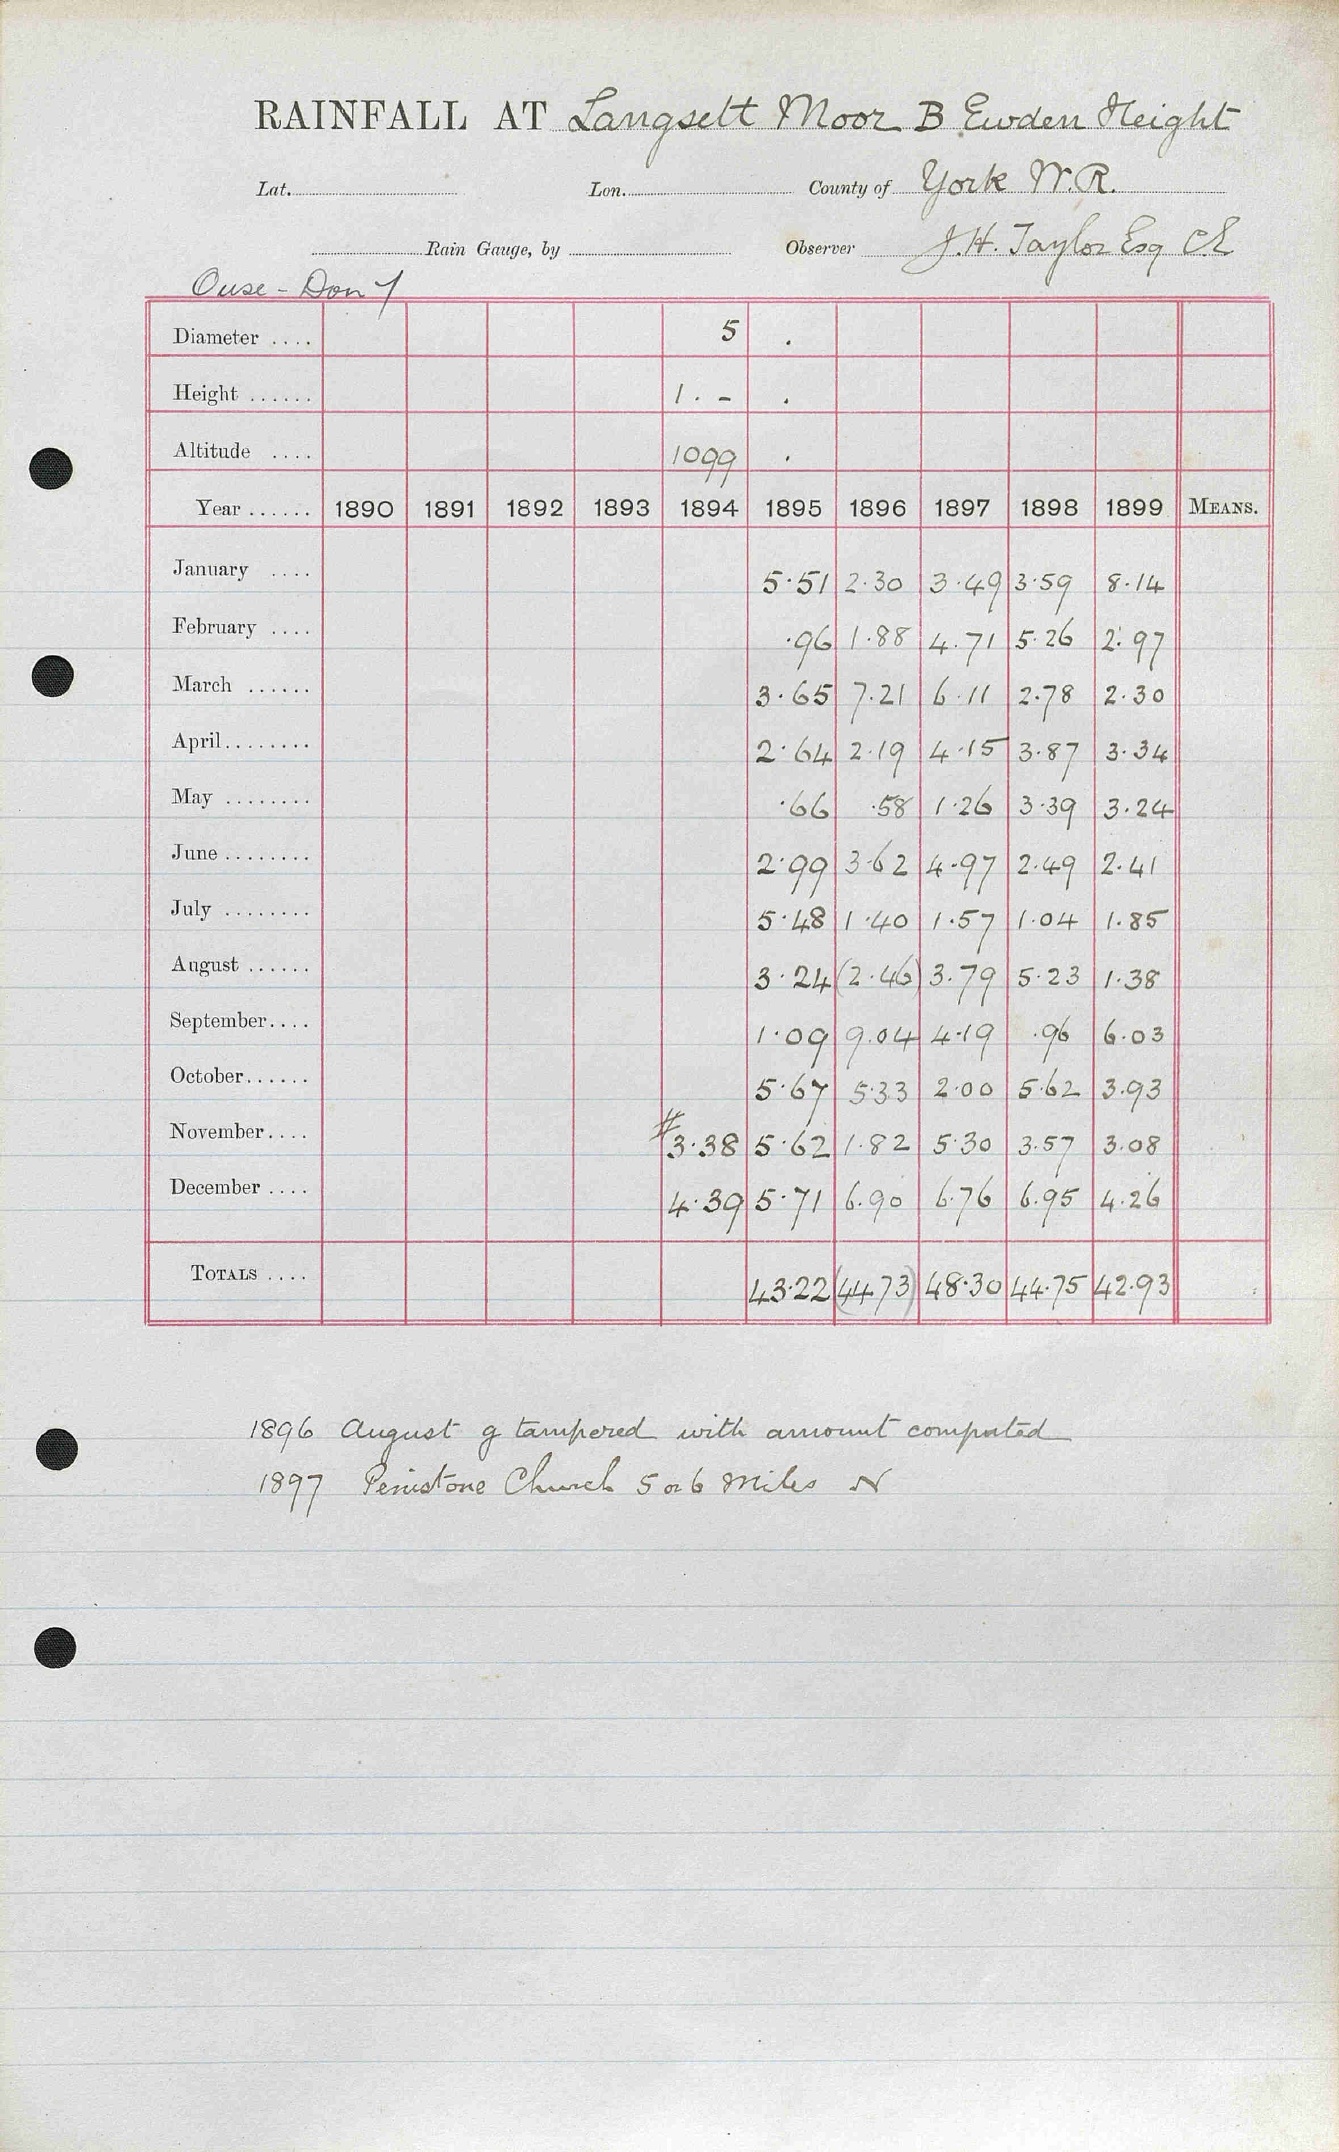 RAINFALL AT Langsett Moor B Ewden Height
Lat. Lon. County of York W.R.
Rain Gauge, by Observer J.H. Taylor Esq C.E
Ouse - Don
Diameter .... 5 .
Height ...... 1 . - .
Altitude .... 1099 .
Year ...... 1890 1891 1892 1893 1894 1895 1896 1897 1898 1899 MEANS.
January .... 5.51 2.30 3.49 3.59 8.14
February .... .96 1.88 4.71 5.26 2.97
March ...... 3.65 7.21 6.11 2.78 2.30
April ........ 2.64 2.19 4.15 3.87 3.34
May ........ .66 .58 1.26 3.39 3.24
June ........ 2.99 3.62 4.97 2.49 2.41
July ........ 5.48 1.40 1.57 1.04 1.85
August ...... 3.24 (2.46) 3.79 5.23 1.38
September .... 1.09 9.04 4.19 .96 6.03
October ...... 5.67 5.33 2.00 5.62 3.93
November .... #3.38 5.62 1.82 5.30 3.57 3.08
December .... 4.39 5.71 6.90 6.76 6.95 4.26
TOTALS .... 43.22 (44.73) 48.30 44.75 42.93
1896 August g tampered with amount computed
1897 Penistone Church 5 or 6 Miles N